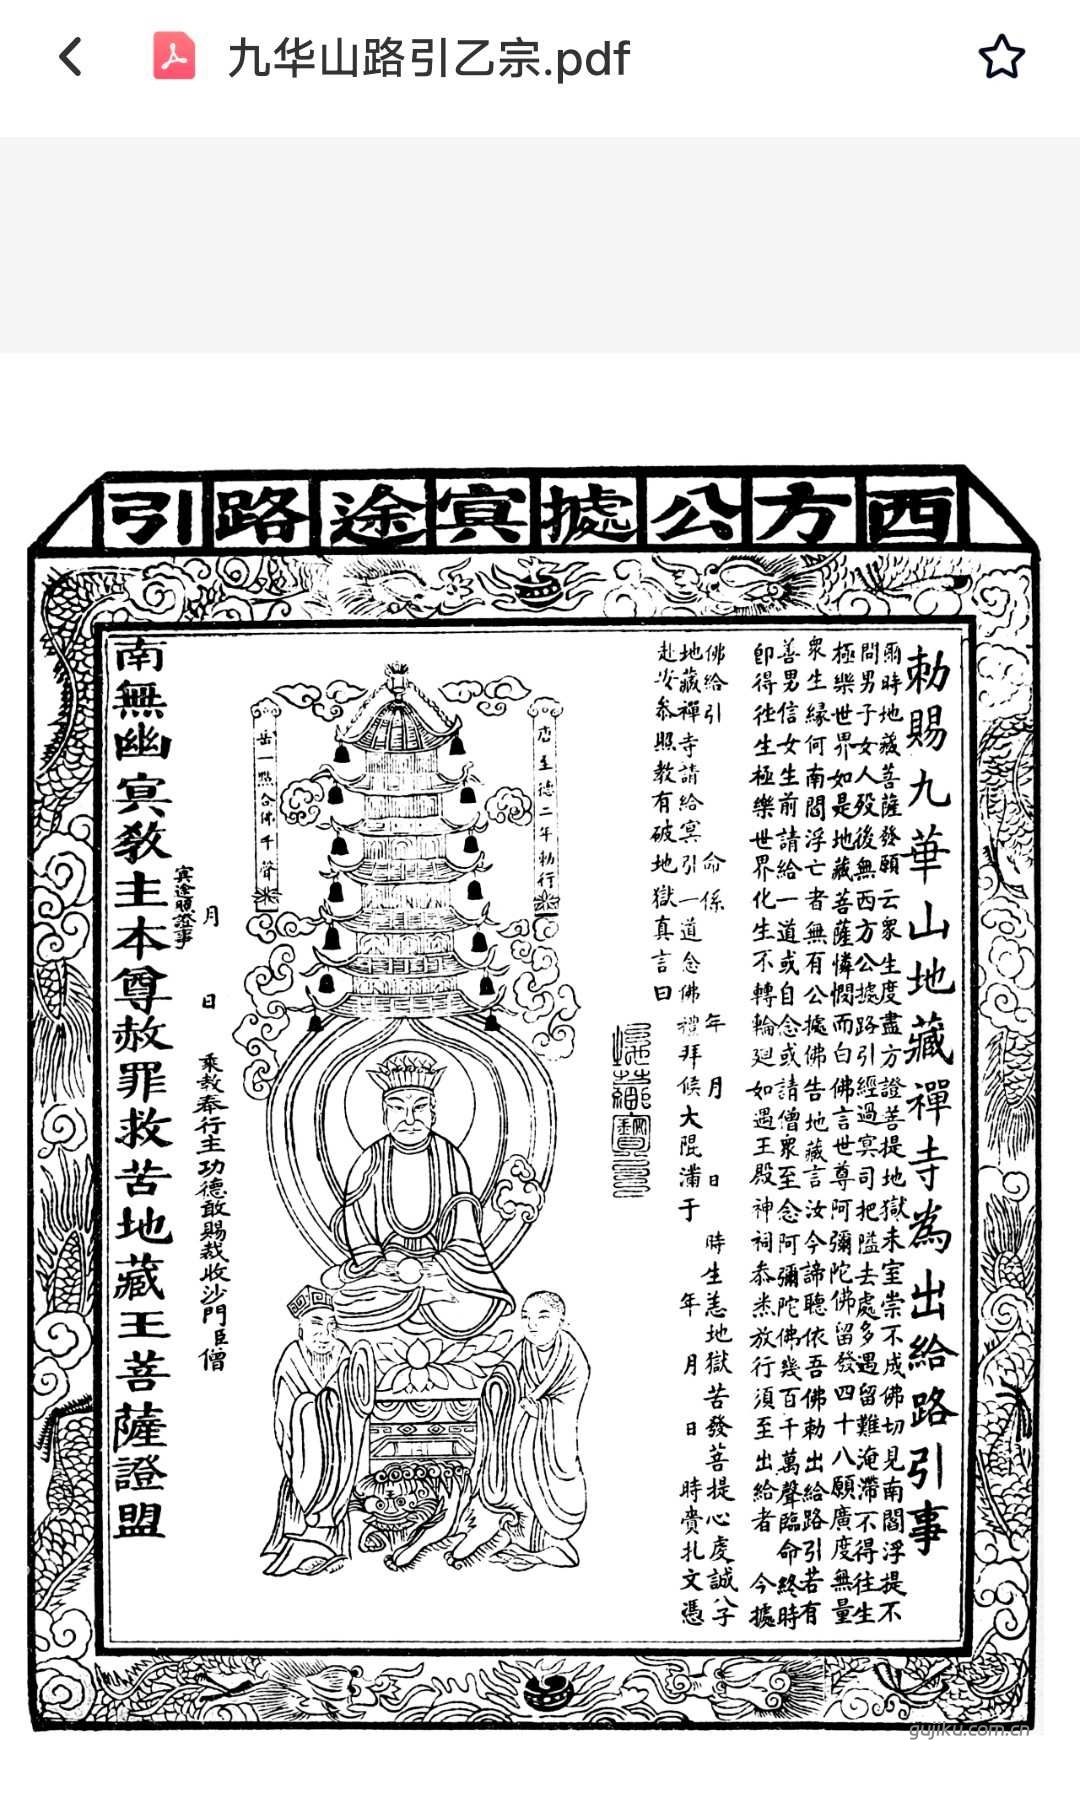 九华山路引乙宗.pdf
西方公據冥途路引
勅賜九華山地藏禪寺為出給路引事
爾時地藏菩薩發願云衆生度盡方證菩提地獄未空崇不成佛切見南閻浮提不
問男子女人歿後無西方公據路引經過冥司把隘去處多遇留難淹滯不得往生
極樂世界如是地藏菩薩憐憫而白佛言世尊阿彌陀佛留發四十八願廣度無量
衆生緣何南閻浮亡者無有公據佛告地藏言汝今諦聽依吾佛勅出給路引若有
善男信女生前請給一道或自念或請僧衆至念阿彌陀佛幾百千萬聲臨命終時
卽得徃生極樂世界化生不轉輪廻如遇王殿神祠恭悉放行須至出給者 今據
佛給引 命係 年 月 日 時生恙地獄苦發菩提心虔誠
地藏禪寺請給冥引一道念佛禮拜候大限滿于 年 月 日 時賫扎文憑
赴 參照教有破地獄真言曰
唐至德二年勅行
岳一 合佛千聲
月 日 乘教奉行主功德敢賜裁收沙門臣僧
冥途照證事
南無幽冥教主本尊赦罪救苦地藏王菩薩證盟
gujiku.com.cn